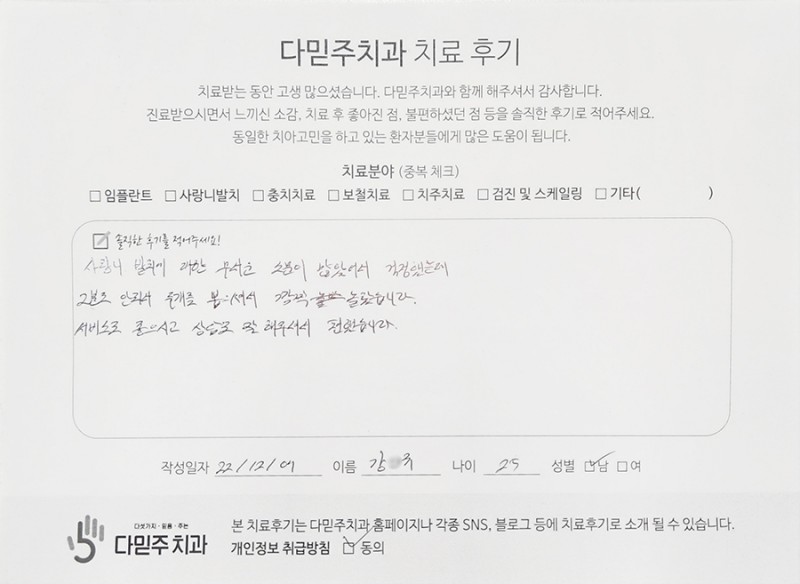 다믿주치과 치료 후기
치료받는 동안 고생 많으셨습니다. 다믿주치과와 함께 해주셔서 감사합니다.
진료받으시면서 느끼신 소감, 치료 후 좋아진 점, 불편하셨던 점 등을 솔직한 후기로 적어주세요.
동일한 치아고민을 하고 있는 환자분들에게 많은 도움이 됩니다.
치료분야 (중복 체크)
□ 임플란트 □ 사랑니발치 □ 충치치료 □ 보철치료 □ 치주치료 □ 검진 및 스케일링 □ 기타( )
☑ 솔직한 후기를 적어주세요!
사랑니 발치에 관한 무서운 소문이 많았어서 걱정했는데
2분도 안돼서 두개를 뽑으셔서 깜짝 놀랐습니다.
서비스도 좋으시고 상담도 잘 해주셔서 편했습니다.
작성일자 22/12/01 이름 강 주 나이 25 성별 ☑남 □여
다섯가지 · 믿음 · 주는
다믿주치과
본 치료후기는 다믿주치과 홈페이지나 각종 SNS, 블로그 등에 치료후기로 소개 될 수 있습니다.
개인정보 취급방침 ☑ 동의